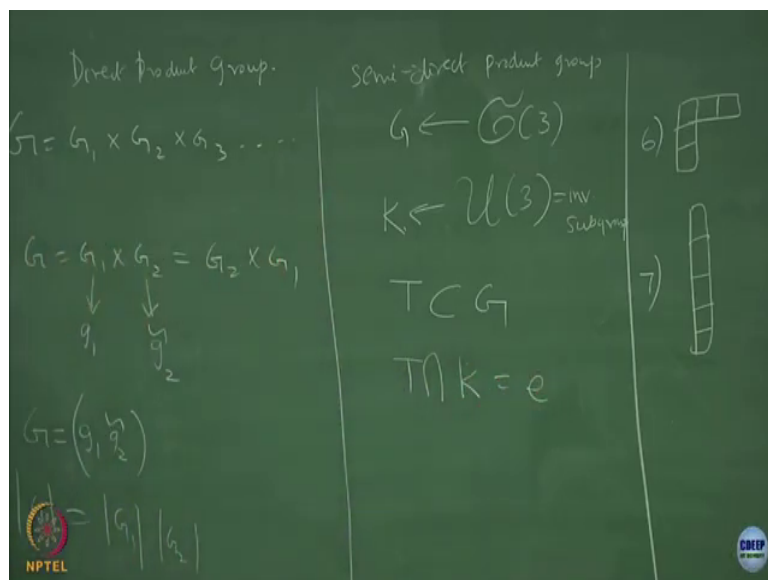 Direct Product Group.
G = G₁ × G₂ × G₃ ....
G = G₁ × G₂ = G₂ × G₁
g₁ g̃₂
G = (g₁ g̃₂)
= |G₁| |G₂|
semi-direct product group
G ← G̃(3)
K ← U(3) = inv
Subgroup
T ⊂ G
T ∩ K = e
6)
7)
NPTEL
CDEEP
IIT BOMBAY